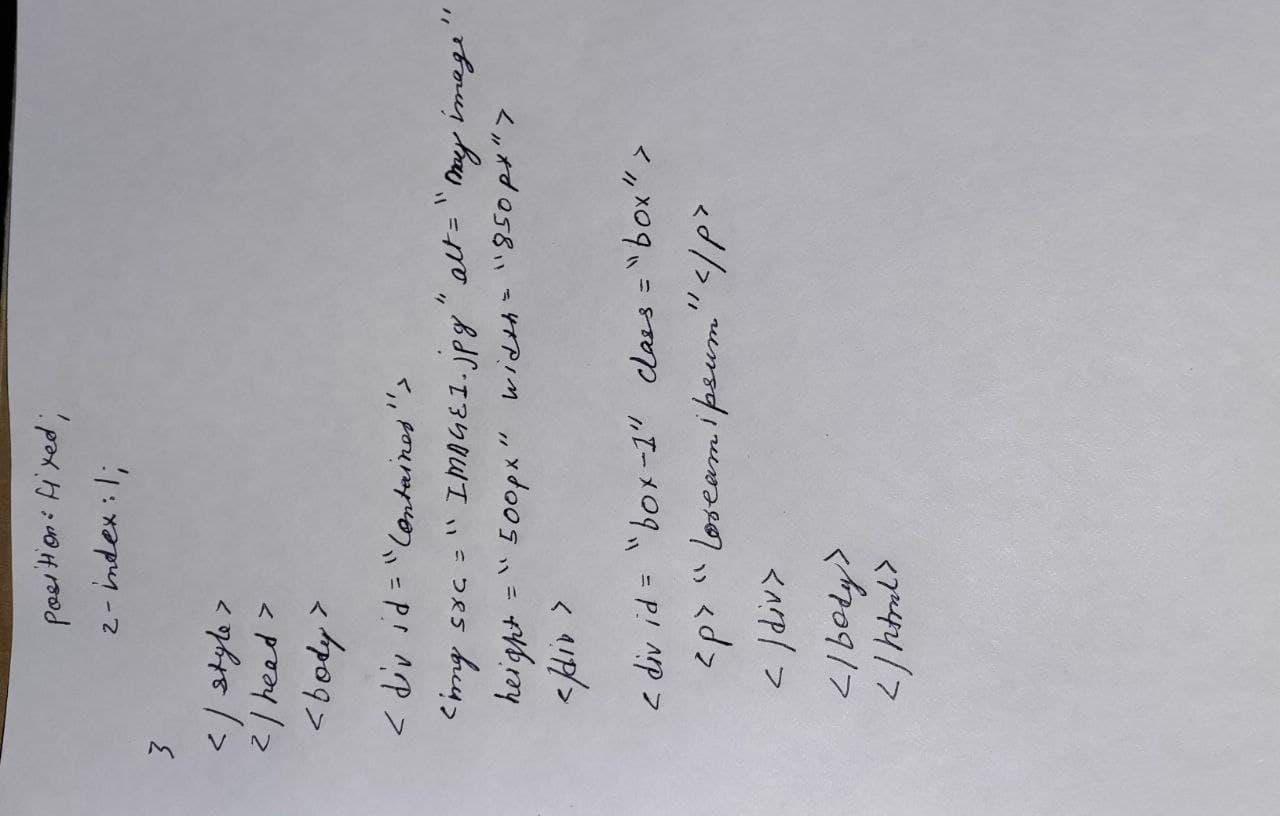 position: fixed;
z-index: 1;
}
</style>
</head>
<body>
<div id="Container">
<img src="IMAGE1.jpg" alt="my image"
height="500px" width="850px">
</div>
<div id="box-1" class="box">
<p>"loream ipsum"</p>
</div>
</body>
</html>